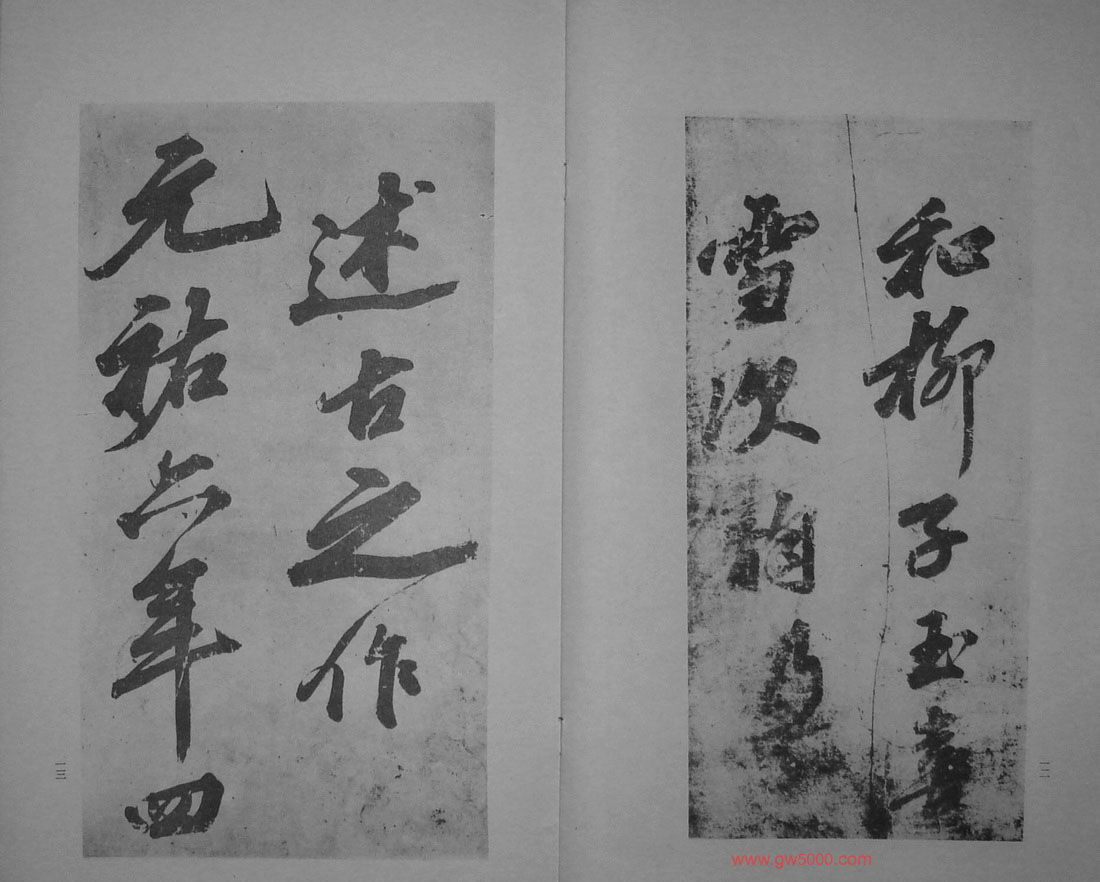 和柳子玉喜
雪次韵
一二
述古之作
元祐六年四
一三
www.gw5000.com